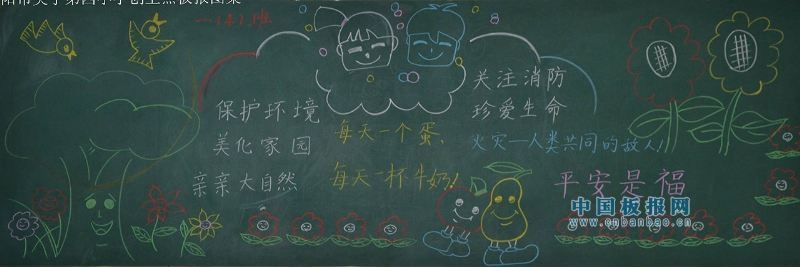 一(4)班
保护环境
美化家园
亲亲大自然
每天一个蛋、
每天一杯牛奶!
关注消防
珍爱生命
火灾—人类共同的敌人!
平安是福
中国板报网
www.cnbanbao.cn